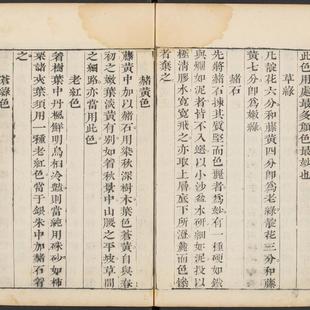 此色用處最多顏色最妙也
草綠
凡靛花六分和藤黃四分卽爲老綠靛花三分和藤
黃七分卽爲嫩綠
赭石
先將赭石揀其質堅而色麗者爲妙有一種硬如鐵
與爛如泥者皆不入選以小沙盆水研細如泥投以
極清膠水寬寬飛之亦取上層底下所澄麄而色慘
者棄之
赭黃色
藤黃中加以赭石用染秋深樹木葉色蒼黃自與春
初之嫩葉淡黃有別如着秋景中山腰之平坡草間
之細路亦當用此色
老紅色
着樹葉中丹楓鮮明烏桕冷艷則當純用硃砂如柿
栗諸夾葉須用一種老紅色當于銀朱中加赭石着
之
蒼綠色